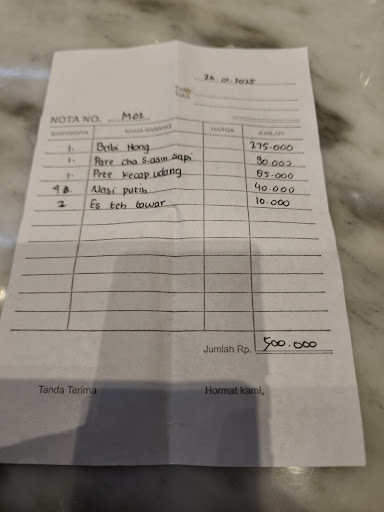 26.01.2025
Tuan
Toko
NOTA NO. M02
BANYAKNYA NAMA BARANG HARGA JUMLAH
1. Babi Hong 275.000
1. Pare cha S.asin sapi 90.000
1. Pete kecap udang 85.000
4 Nasi putih 40.000
2 Es teh tawar 10.000
Jumlah Rp. 500.000
Tanda Terima Hormat kami,